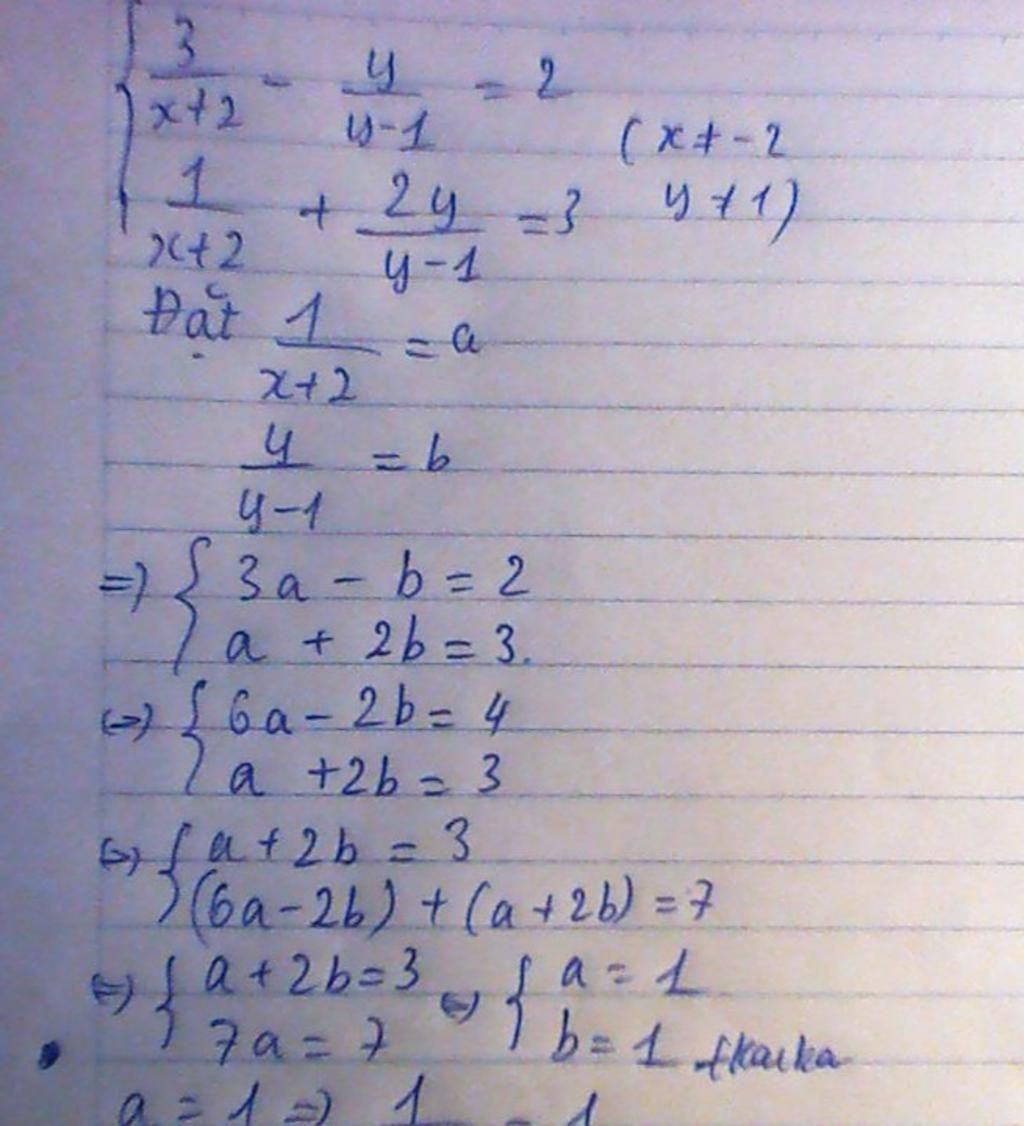 { 3/(x+2) - y/(y-1) = 2
(x ≠ -2
1/(x+2) + 2y/(y-1) = 3
y ≠ 1)
Đặt 1/(x+2) = a
y/(y-1) = b
=> { 3a - b = 2
a + 2b = 3.
<=> { 6a - 2b = 4
a + 2b = 3
<=> { a + 2b = 3
(6a - 2b) + (a + 2b) = 7
<=> { a + 2b = 3 <=> { a = 1
7a = 7 b = 1
a = 1 => 1 = 1